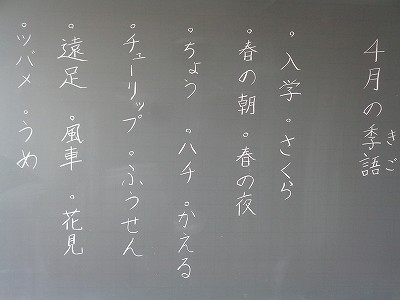 4月の季語
きご
。入学。さくら
。春の朝。春の夜
。ちょう。ハチ。かえる
。チューリップ。ふうせん
。遠足。風車。花見
。ツバメ。うめ